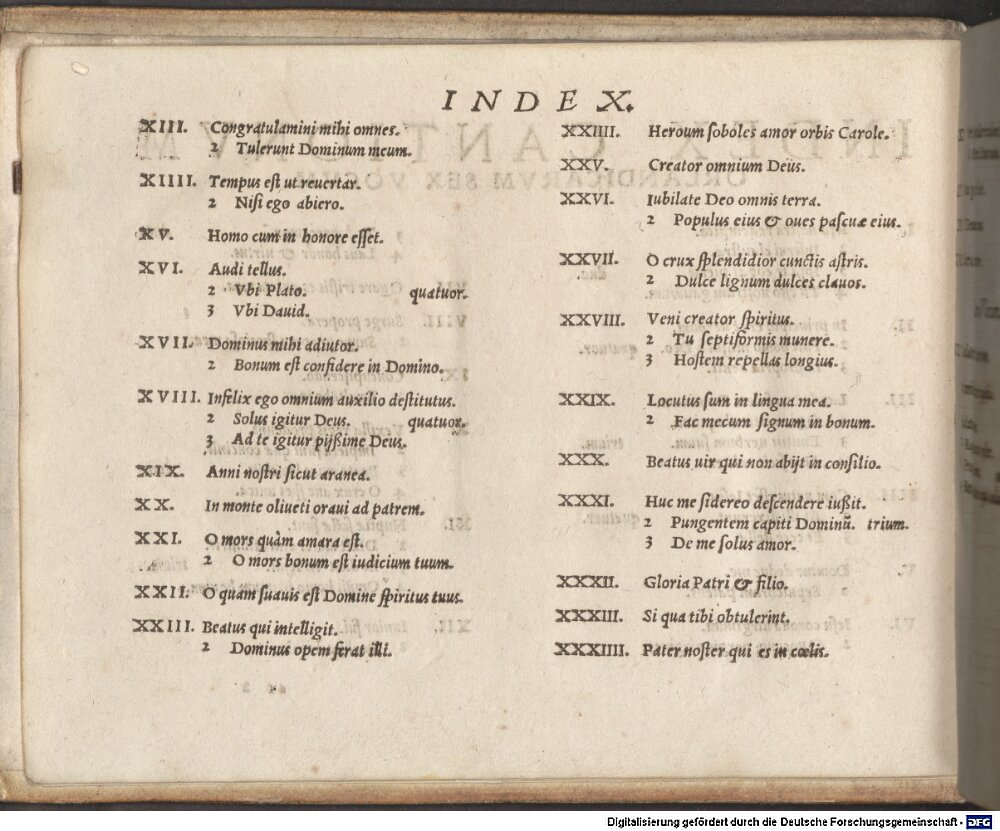 INDEX.
XIII. Congratulamini mihi omnes.
2 Tulerunt Dominum meum.
XIIII. Tempus eſt ut reuertar.
2 Niſi ego abiero.
XV. Homo cum in honore eſſet.
XVI. Audi tellus.
2 Vbi Plato. quatuor.
3 Vbi Dauid.
XVII. Dominus mihi adiutor.
2 Bonum eſt confidere in Domino.
XVIII. Infelix ego omnium auxilio deſtitutus.
2 Solus igitur Deus. quatuor.
3 Ad te igitur pijßime Deus.
XIX. Anni noſtri ſicut aranea.
XX. In monte oliueti oraui ad patrem.
XXI. O mors quàm amara eſt.
2 O mors bonum eſt iudicium tuum.
XXII. O quam ſuauis eſt Domine ſpiritus tuus.
XXIII. Beatus qui intelligit.
2 Dominus opem ferat illi.
XXIIII. Heroum ſoboles amor orbis Carole.
XXV. Creator omnium Deus.
XXVI. Iubilate Deo omnis terra.
2 Populus eius & oues paſcuæ eius.
XXVII. O crux ſplendidior cunctis aſtris.
2 Dulce lignum dulces clauos.
XXVIII. Veni creator ſpiritus.
2 Tu ſeptiformis munere.
3 Hoſtem repellas longius.
XXIX. Locutus ſum in lingua mea.
2 Fac mecum ſignum in bonum.
XXX. Beatus uir qui non abijt in conſilio.
XXXI. Huc me ſidereo deſcendere iußit.
2 Pungentem capiti Dominũ. trium.
3 De me ſolus amor.
XXXII. Gloria Patri & filio.
XXXIII. Si qua tibi obtulerint.
XXXIIII. Pater noſter qui es in cœlis.
Digitalisierung gefördert durch die Deutsche Forschungsgemeinschaft - DFG